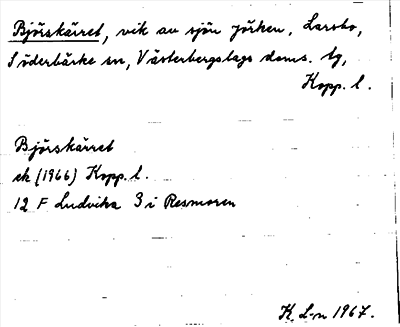 Björskärret, vik av sjön Jörken, Larsbo,
Söderbärke sn, Västerbergslags doms. tg,
Kopp. l.
Björskärret
ek (1966) Kopp. l.
12 F Ludvika 3 i Resmoren
K. L-n 1967.